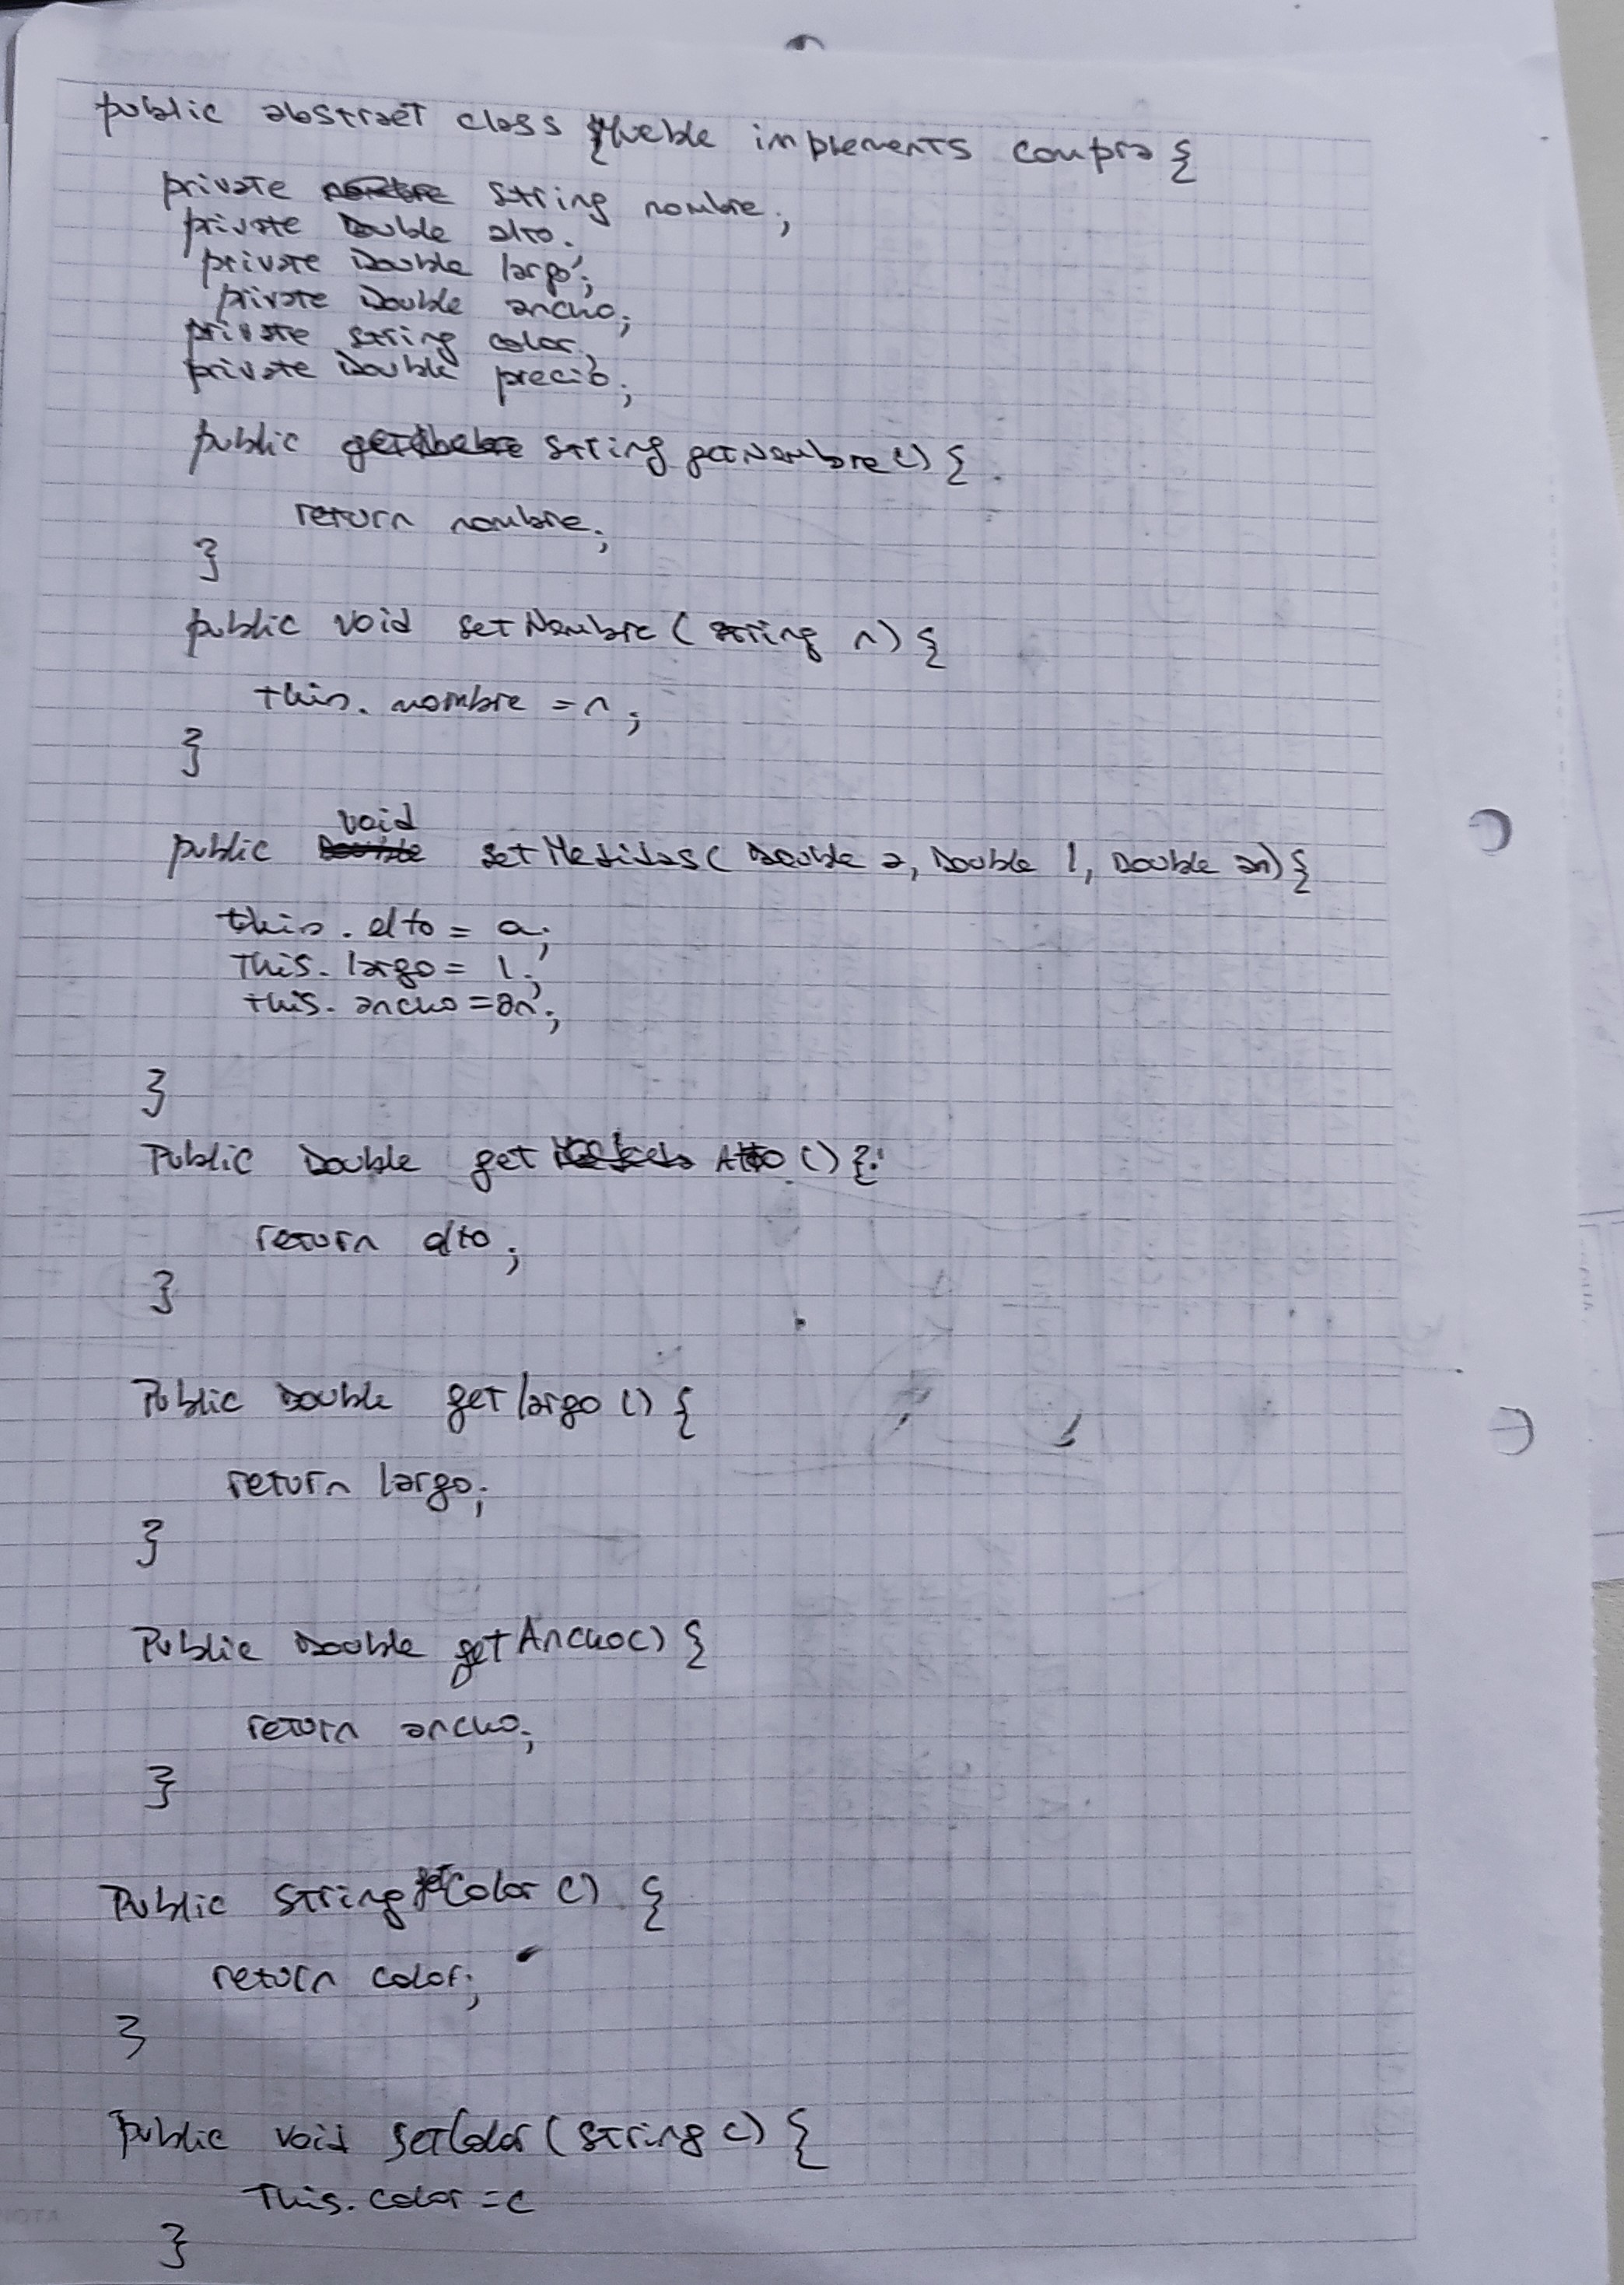 public abstract class Mueble implements compra {
private String nombre;
private Double alto.
private Double largo;
private Double ancho;
private String color;
private Double precio;
public String getNombre() {
return nombre;
}
public void setNombre (String n) {
this. nombre = n;
}
void
public setMedidas ( Double a, Double l, Double an) {
this. alto = a;
This. largo = l;
this. ancho = an;
}
Public Double get Alto () {
return alto;
}
Public Double get largo () {
return largo;
}
Public Double getAncho() {
return ancho;
}
Public String getColor () {
return color;
}
public void setColor (String c) {
This. color = c
}